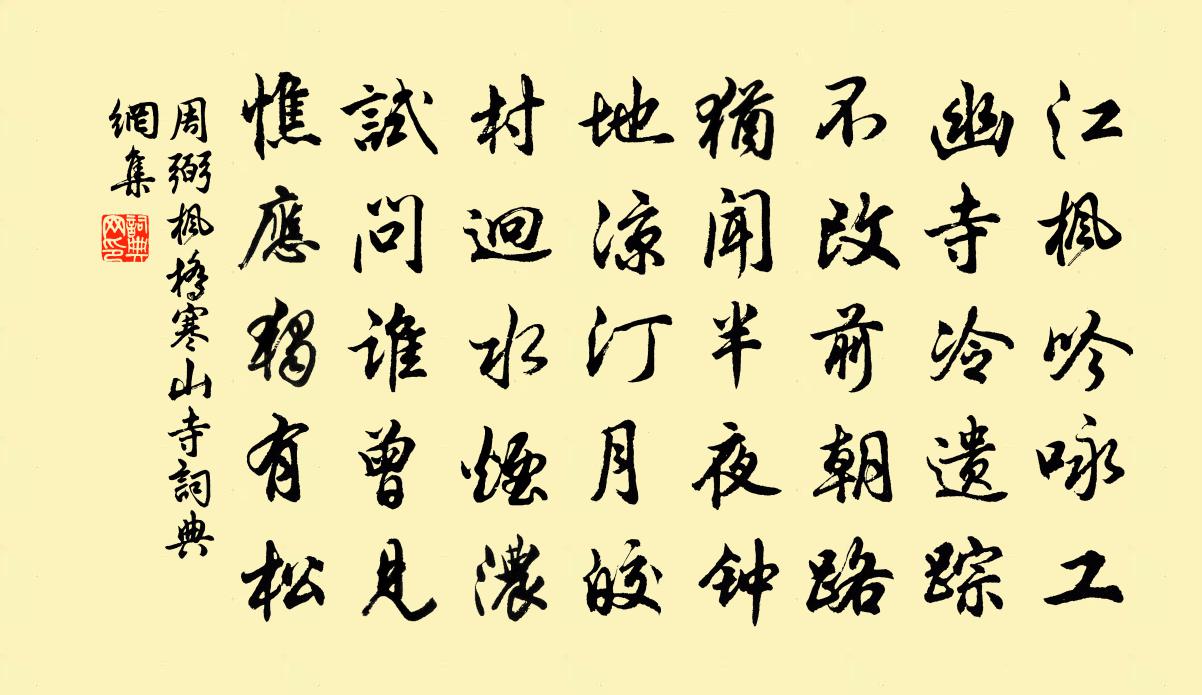 江枫吟咏工
幽寺冷遗踪
不改前朝路
猶闻半夜钟
地凉汀月皎
村迥水煙濃
試问誰曾見
憔應獨有松
周弼枫橋寒山寺詞典
網集
詞典網印